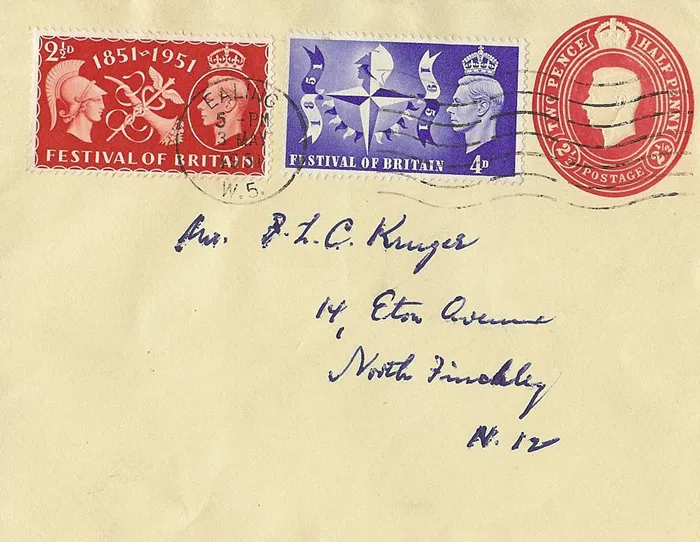 2½D
1851-1951
FESTIVAL OF BRITAIN
1851
1951
FESTIVAL OF BRITAIN
4D
TWO PENCE HALF PENNY
2½ POSTAGE 2½
EALING
5 - PM
3 MAY
W.5.
Mr. P. L. C. Kruger
14, Eton Avenue
North Finchley
N. 12